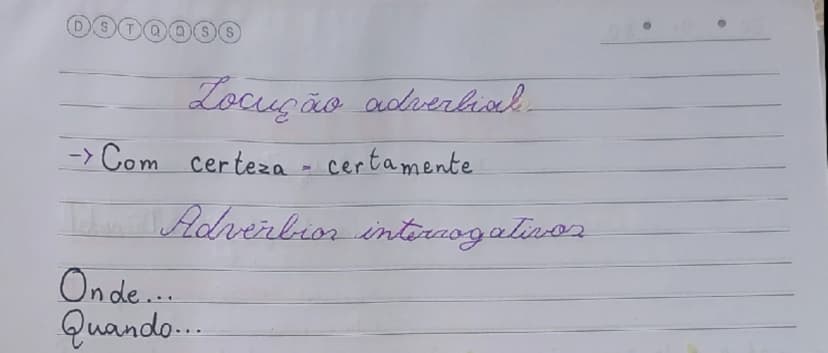 D S T Q Q S S
Locução adverbial.
→ Com certeza - certamente
Advérbios interrogativos
Onde...
Quando...